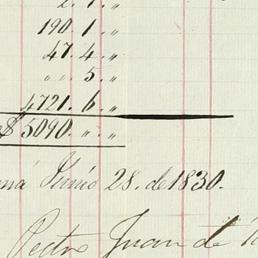 2. 1. "
190. 1. "
47. 4. "
" " 5. "
4721. 6. "
$ 5090. " "
Junio 28. de 1830.
Pedro Juan de